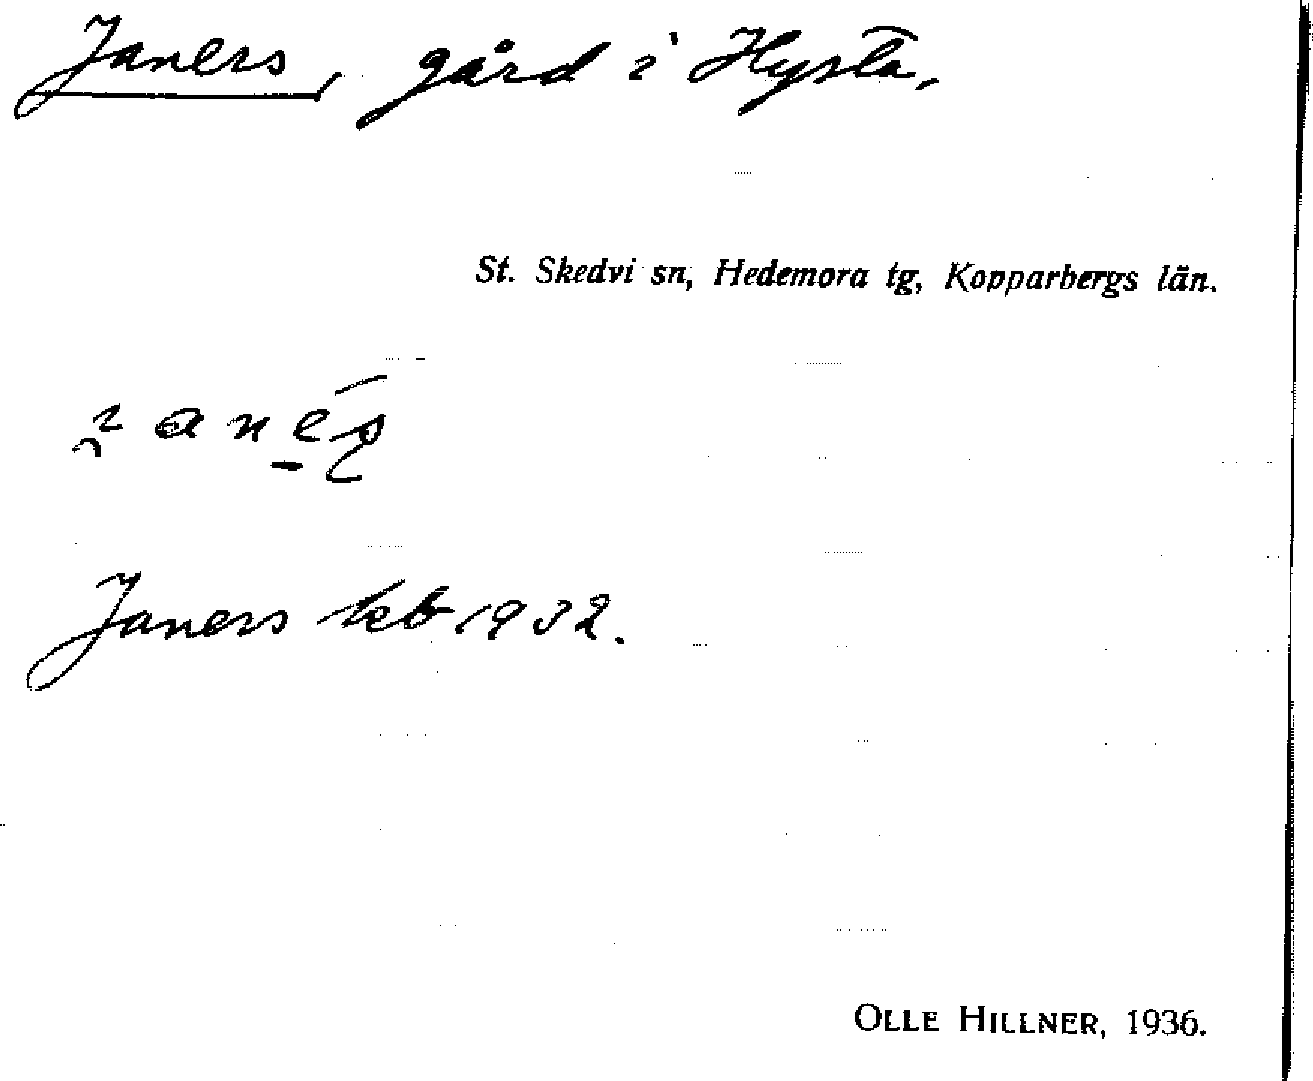 Janers, gård i Hysta,
St. Skedvi sn, Hedemora tg, Kopparbergs län.
Janers teb 1932.
OLLE HILLNER, 1936.